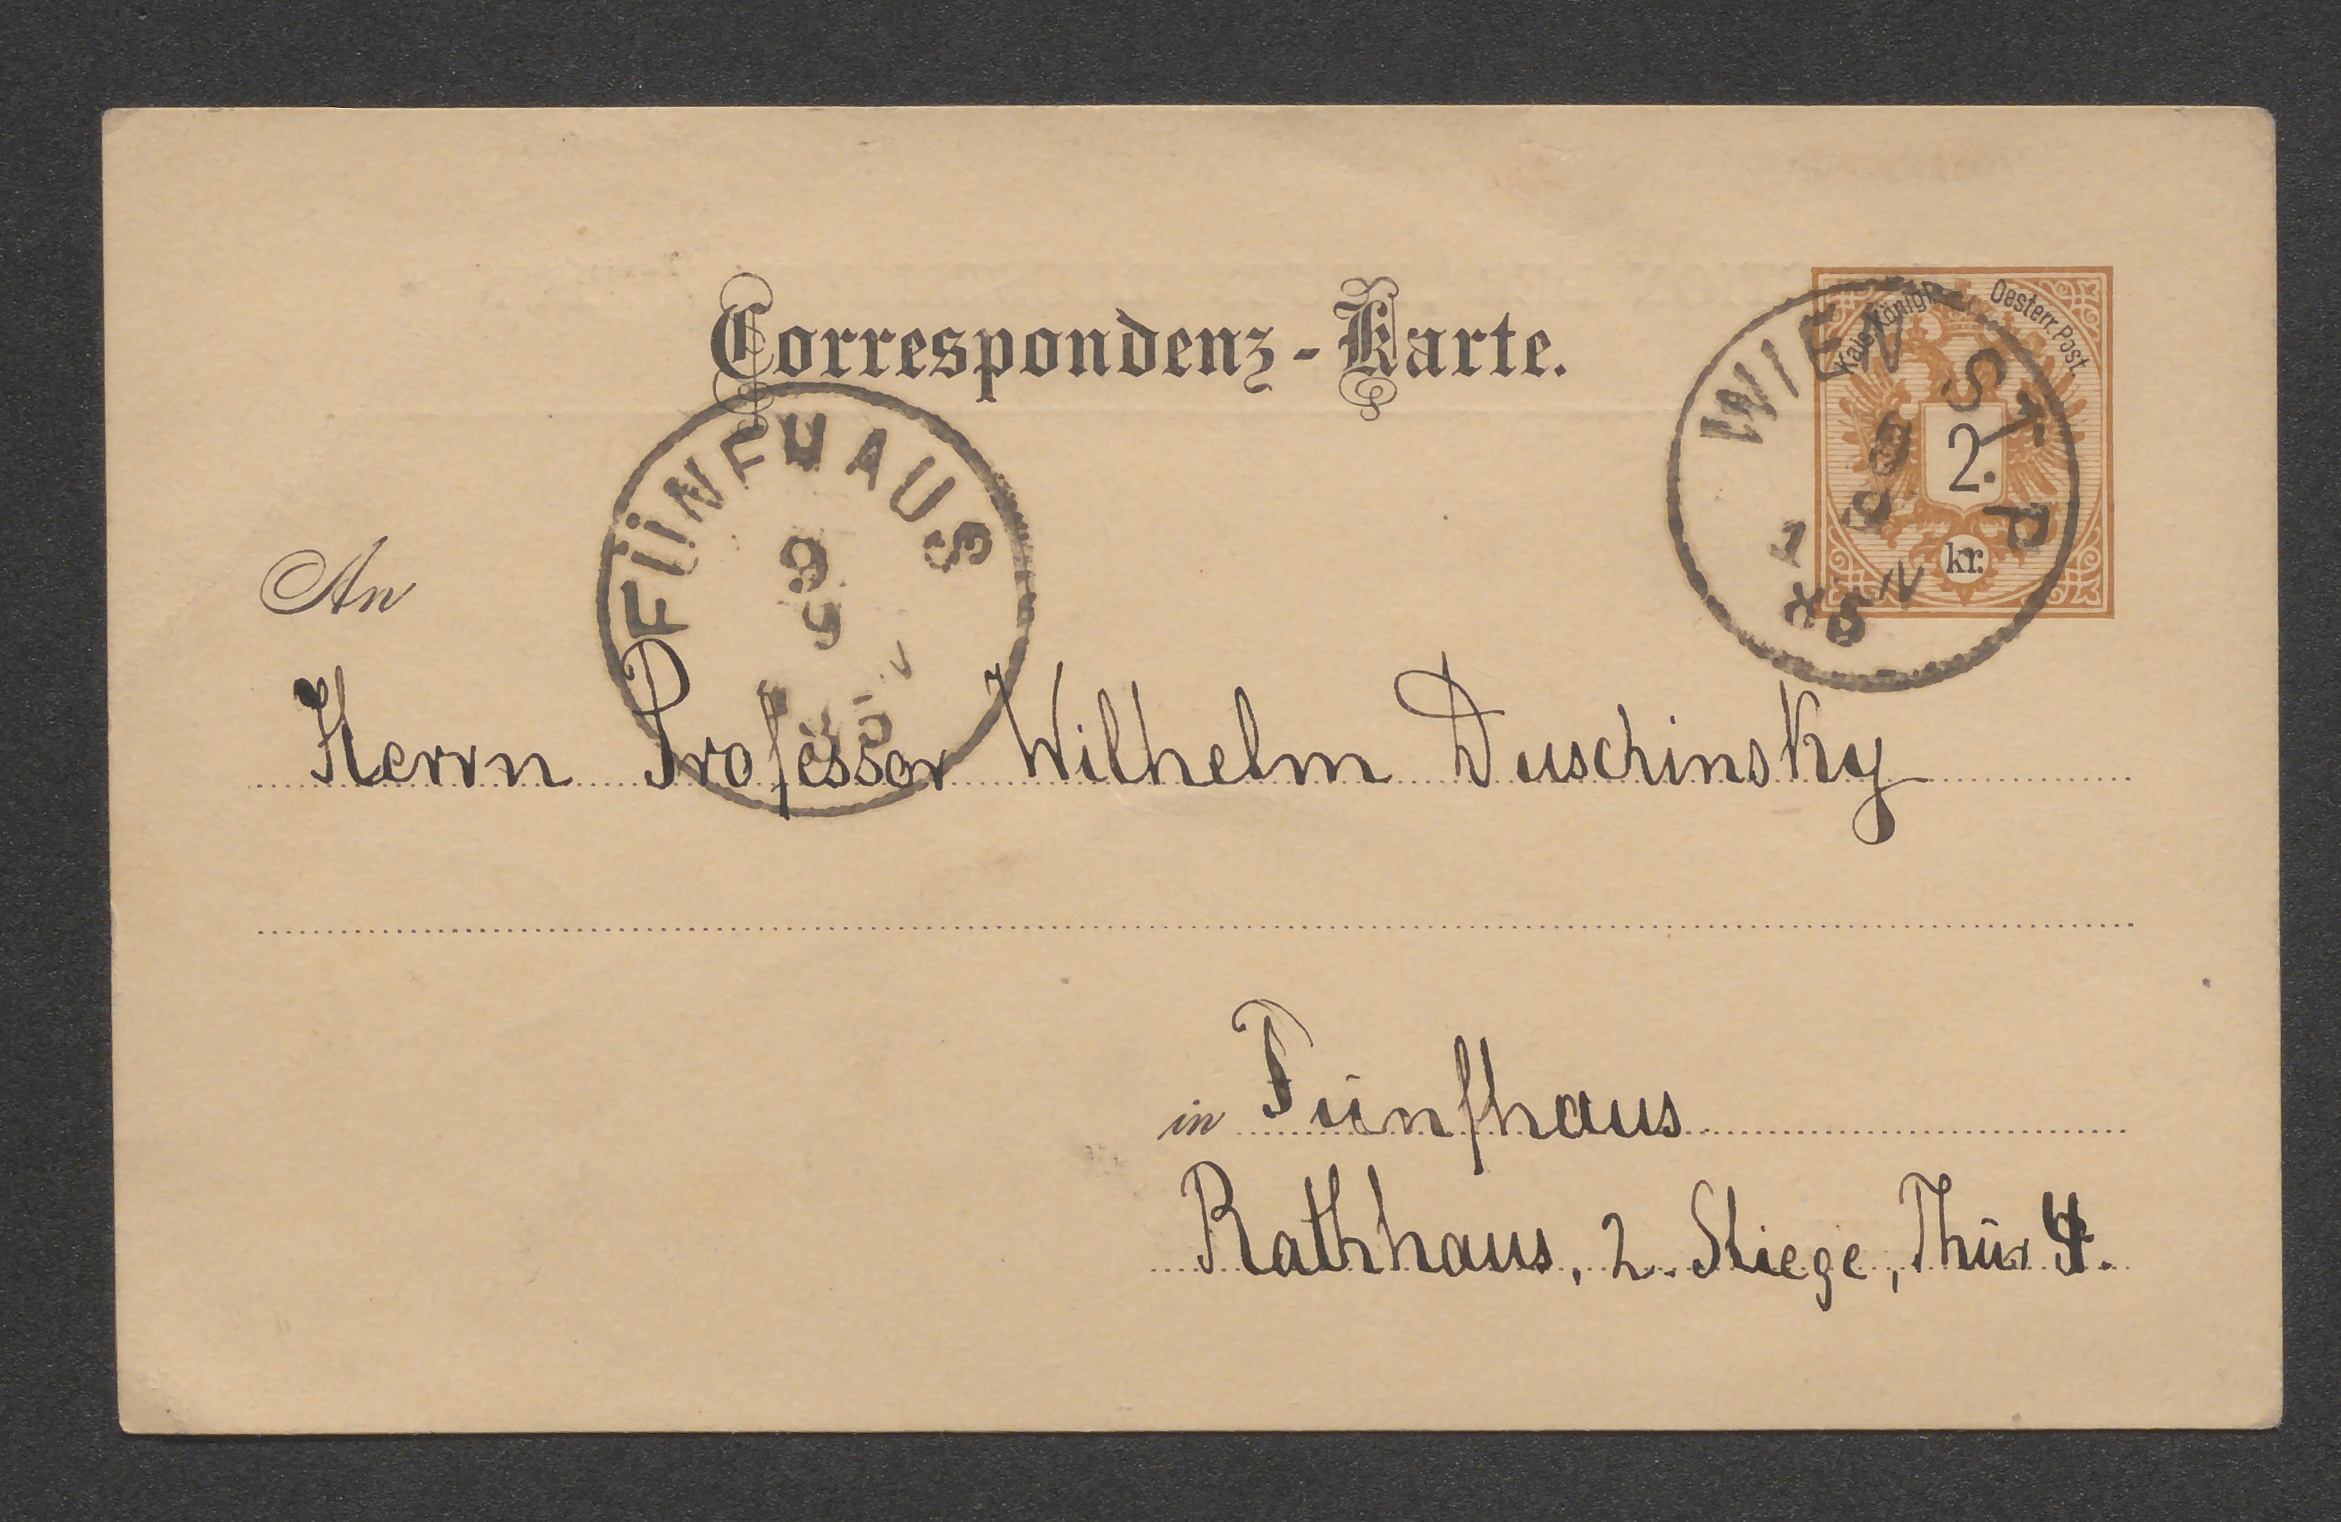 Correspondenz-Karte.
Kais. Königl. Oesterr. Post.
2.
kr.
WIEN ST. P
FÜNFHAUS
An
Herrn Professor Wilhelm Duschinsky
in Fünfhaus
Rathhaus, 2. Stiege, Thür 4.